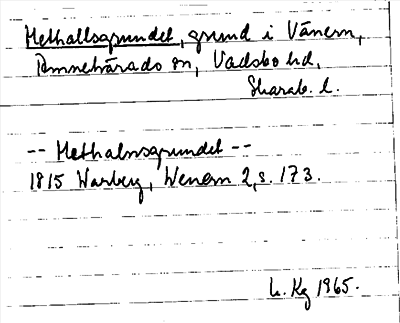 Methallsgrundet, grund i Vänern,
Amnehärads sn, Vadsbo hd,
Skarab. l.
-- Methalnsgrundet --
1815 Warberg, Wenern 2, s. 173.
L. Kg 1965.